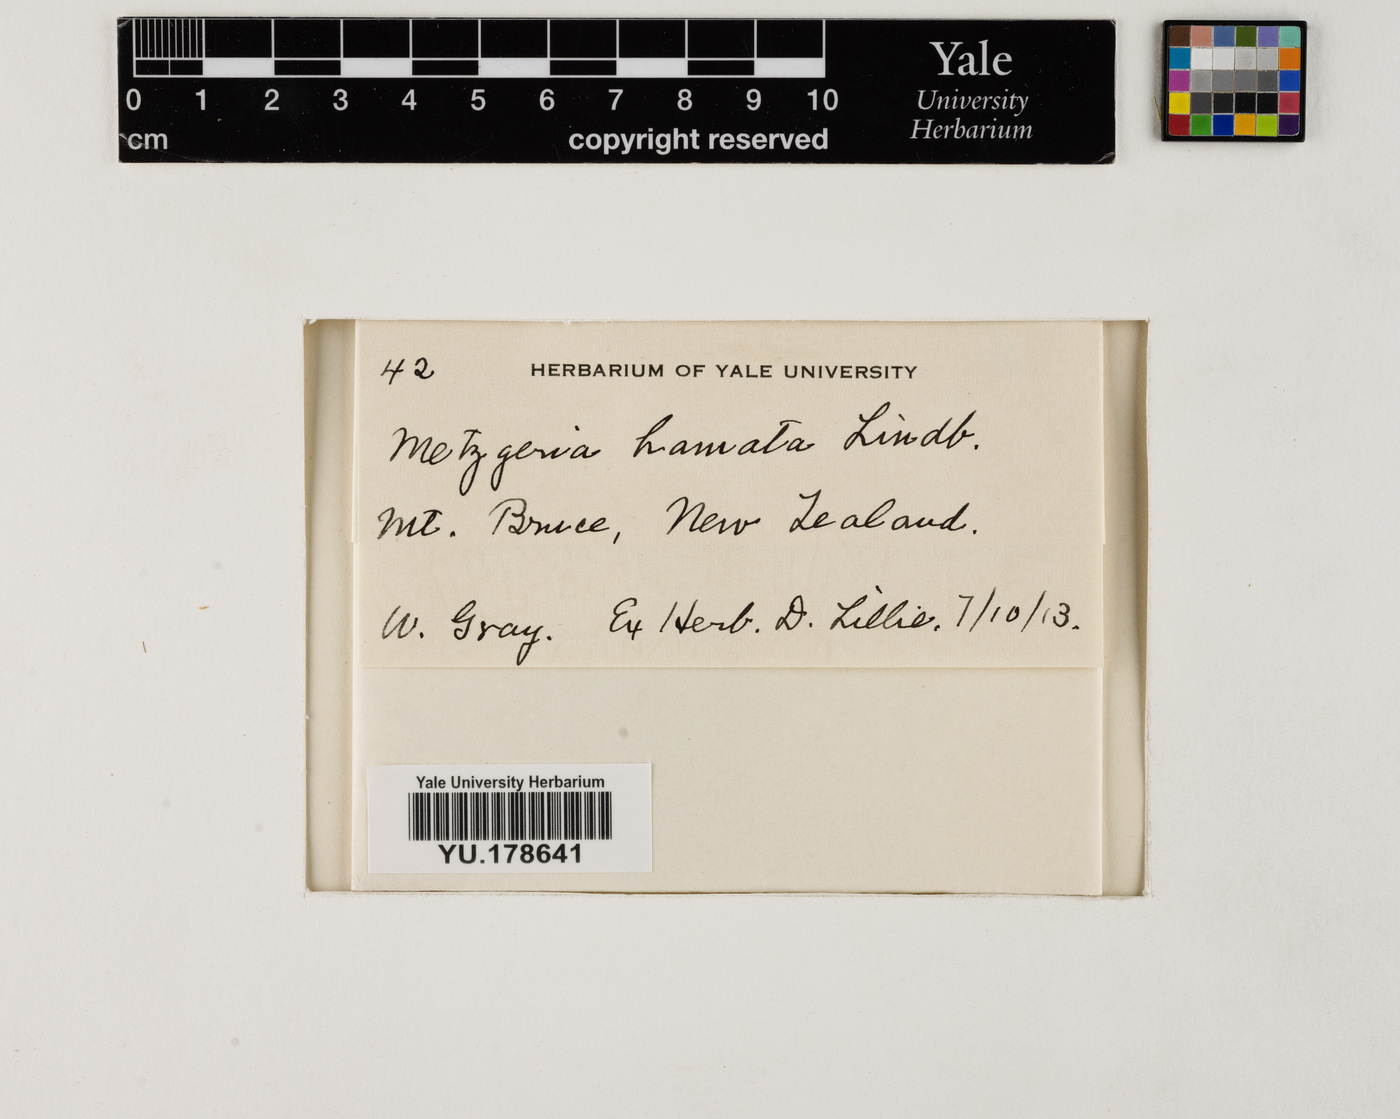 0 1 2 3 4 5 6 7 8 9 10
cm
copyright reserved
Yale
University
Herbarium
42
HERBARIUM OF YALE UNIVERSITY
Metzgeria hamata Lindb.
Mt. Bruce, New Zealand.
W. Gray. Ex Herb. D. Lillie. 7/10/13.
Yale University Herbarium
YU.178641